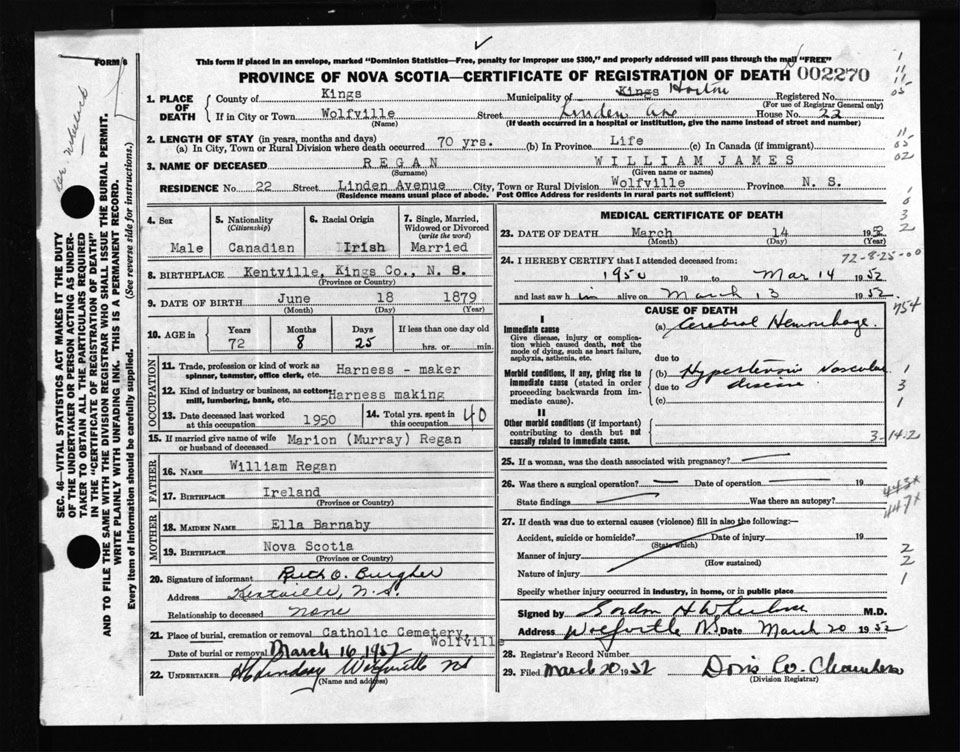 FORM 6
This form if placed in an envelope, marked "Dominion Statistics—Free, penalty for improper use $300," and properly addressed will pass through the mail "FREE"
PROVINCE OF NOVA SCOTIA—CERTIFICATE OF REGISTRATION OF DEATH 002270
1. PLACE OF DEATH { County of Kings Municipality of Kings Horton Registered No.
(For use of Registrar General only)
If in City or Town Wolfville Street Linden Ave House No. 22
(Name) (If death occurred in a hospital or institution, give the name instead of street and number)
2. LENGTH OF STAY (in years, months and days)
(a) In City, Town or Rural Division where death occurred 70 yrs. (b) In Province Life (c) In Canada (if immigrant)
3. NAME OF DECEASED REGAN WILLIAM JAMES
(Surname) (Given name or names)
RESIDENCE No. 22 Street Linden Avenue City, Town or Rural Division Wolfville Province N. S.
(Residence means usual place of abode. Post Office Address for residents in rural parts not sufficient)
4. Sex Male
5. Nationality (Citizenship) Canadian
6. Racial Origin Irish
7. Single, Married, Widowed or Divorced (write the word) Married
8. BIRTHPLACE Kentville, Kings Co., N. S.
(Province or Country)
9. DATE OF BIRTH June 18 1879
(Month) (Day) (Year)
10. AGE in Years 72 Months 8 Days 25 If less than one day old hrs. or min.
OCCUPATION
11. Trade, profession or kind of work as spinner, teamster, office clerk, etc. Harness - maker
12. Kind of industry or business, as cotton-mill, lumbering, bank, etc. Harness making
13. Date deceased last worked at this occupation 1950
14. Total yrs. spent in this occupation 40
15. If married give name of wife or husband of deceased Marion (Murray) Regan
FATHER
16. NAME William Regan
17. BIRTHPLACE Ireland
(Province or Country)
MOTHER
18. MAIDEN NAME Ella Barnaby
19. BIRTHPLACE Nova Scotia
(Province or Country)
20. Signature of informant Ruth O. Burgher
Address Kentville, N.S.
Relationship to deceased None
21. Place of burial, cremation or removal Catholic Cemetery, Wolfville
Date of burial or removal March 16 1952
22. UNDERTAKER Lindsay Wolfville NS
(Name and address)
MEDICAL CERTIFICATE OF DEATH
23. DATE OF DEATH March 14 1952
(Month) (Day) (Year)
72-8-25-00
24. I HEREBY CERTIFY that I attended deceased from:
1950 19 to Mar 14 1952
and last saw him alive on March 13 1952
CAUSE OF DEATH
I
Immediate cause
Give disease, injury or complication which caused death, not the mode of dying, such as heart failure, asphyxia, asthenia, etc.
(a) Cerebral Hemorrhage.
due to
Morbid conditions, if any, giving rise to immediate cause (stated in order proceeding backwards from immediate cause).
(b) Hypertensive Vascular disease
due to
(c)
II
Other morbid conditions (if important) contributing to death but not causally related to immediate cause.
3-14-2
25. If a woman, was the death associated with pregnancy?
26. Was there a surgical operation? Date of operation 19
State findings Was there an autopsy?
27. If death was due to external causes (violence) fill in also the following:—
Accident, suicide or homicide? Date of injury 19
(State which)
Manner of injury
(How sustained)
Nature of injury
Specify whether injury occurred in industry, in home, or in public place
Signed by Gordon H Wheelock M.D.
Address Wolfville NS Date March 20 1952
28. Registrar's Record Number
29. Filed March 20 1952 Doris W. Chambers
(Division Registrar)
SEC. 46—VITAL STATISTICS ACT MAKES IT THE DUTY
OF THE UNDERTAKER OR PERSON ACTING AS UNDER-
TAKER TO OBTAIN ALL THE PARTICULARS REQUIRED
IN THE "CERTIFICATE OF REGISTRATION OF DEATH"
AND TO FILE THE SAME WITH THE DIVISION REGISTRAR WHO SHALL ISSUE THE BURIAL PERMIT.
WRITE PLAINLY WITH UNFADING INK. THIS IS A PERMANENT RECORD.
Every item of information should be carefully supplied. (See reverse side for instructions.)
1
11
05
11
05
02
6
3
2
754
1
3
1
443x
447x
2
2
1